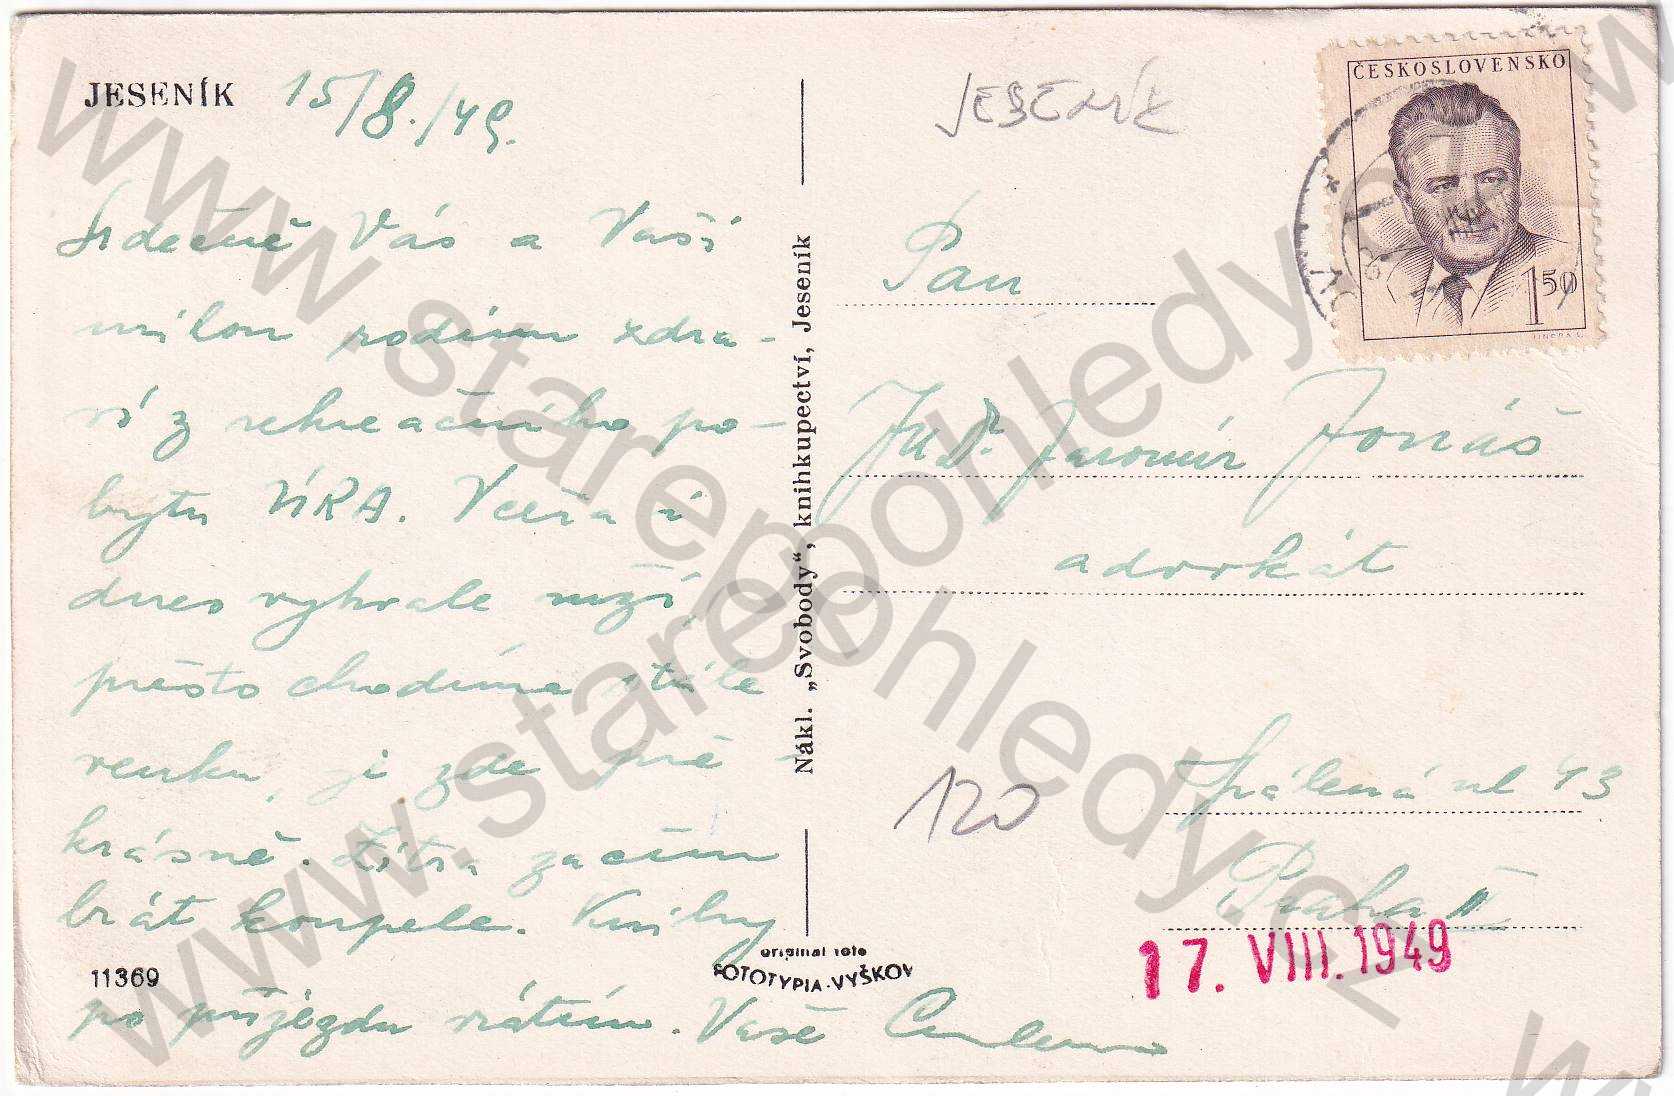 JESENÍK 15/8./49.
Srdečně Vás a Vaši
milou rodinu zdra-
ví z rekreačního po-
bytu ÚRA. Včera i
dnes vyhrále mží,
přesto chodíme stále
venku, je zde pře-
krásně. Zítra začínám
brát koupele. Knihy
po příjezdu vrátím. Vaše
11369
Nákl. „Svobody“, knihkupectví, Jeseník
original foto
FOTOTYPIA-VYŠKOV
JESENÍK
ČESKOSLOVENSKO
1 50
Pan
JUDr. Jaromír Jonáš
advokát
Spálená ul 43
Praha II
120
17. VIII. 1949
www.starepohledy.cz
www.starepohledy.cz